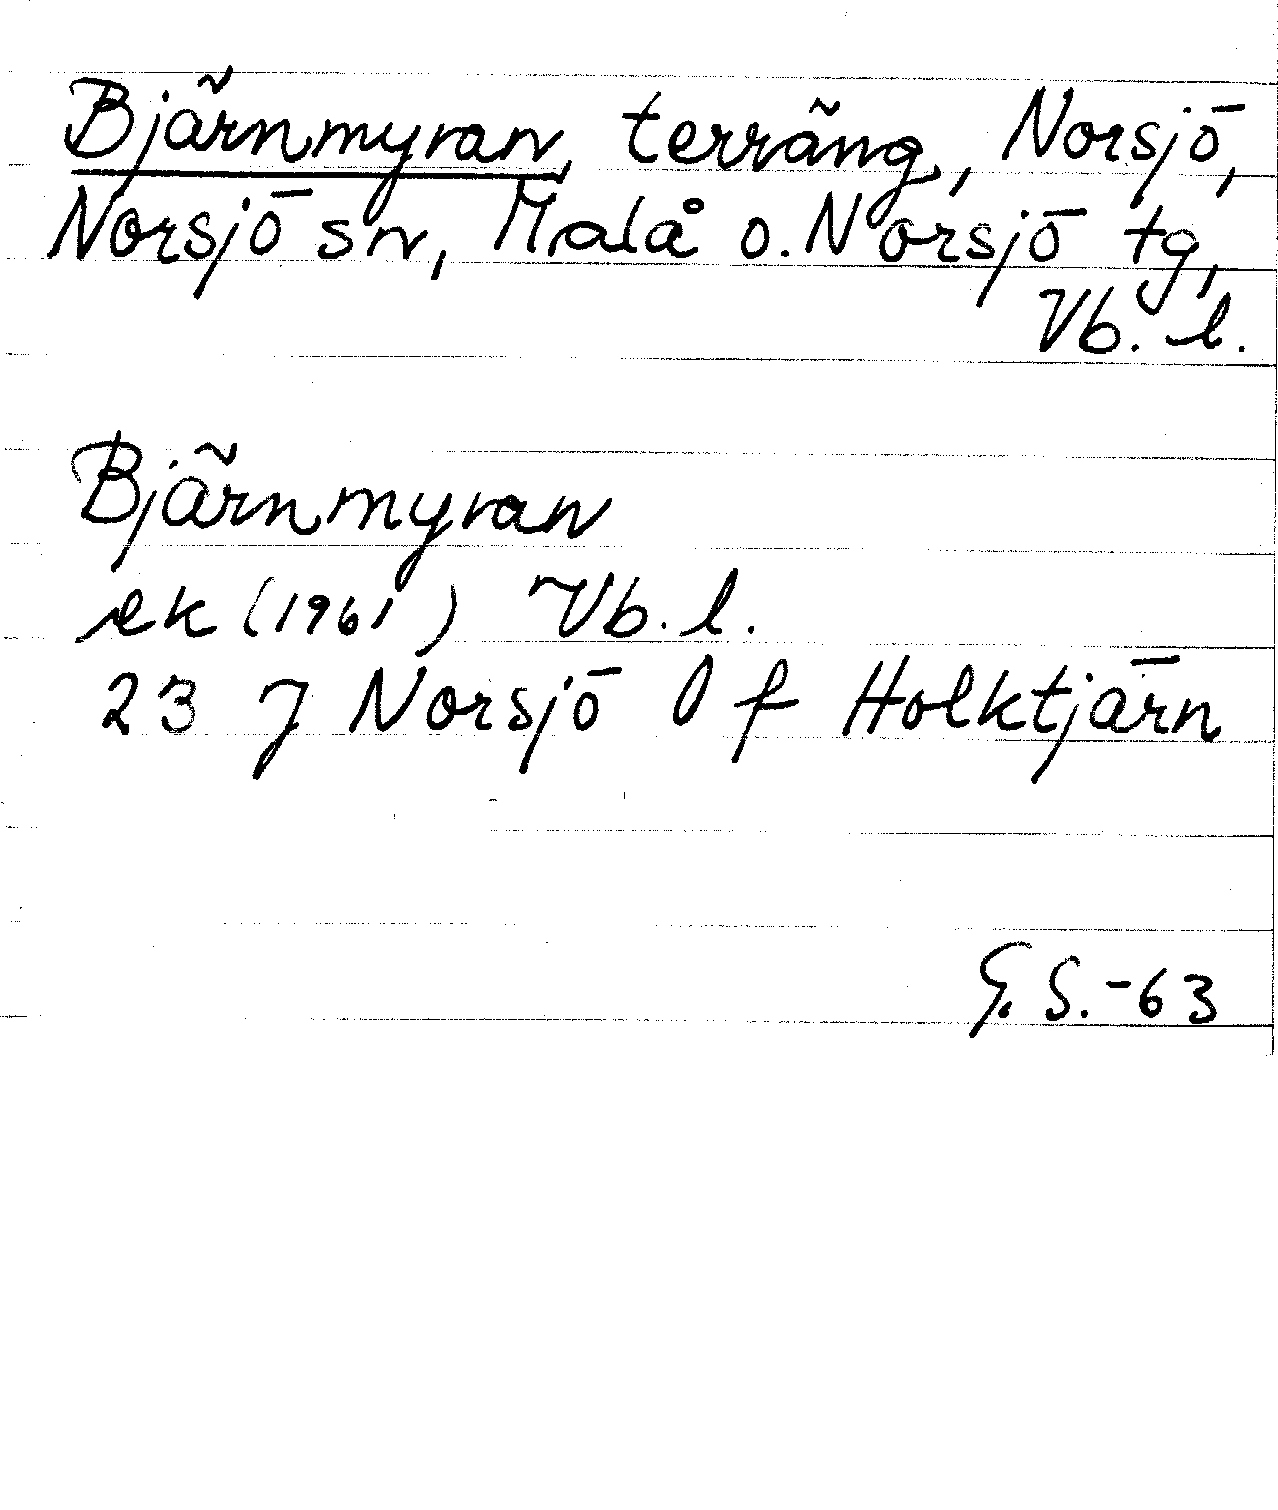 Bjärnmyran, terräng, Norsjö,
Norsjö sn, Malå o. Norsjö tg,
Vb. l.
Bjärnmyran
ek (1961) Vb. l.
23 J Norsjö l f Holktjärn
G. S. -63